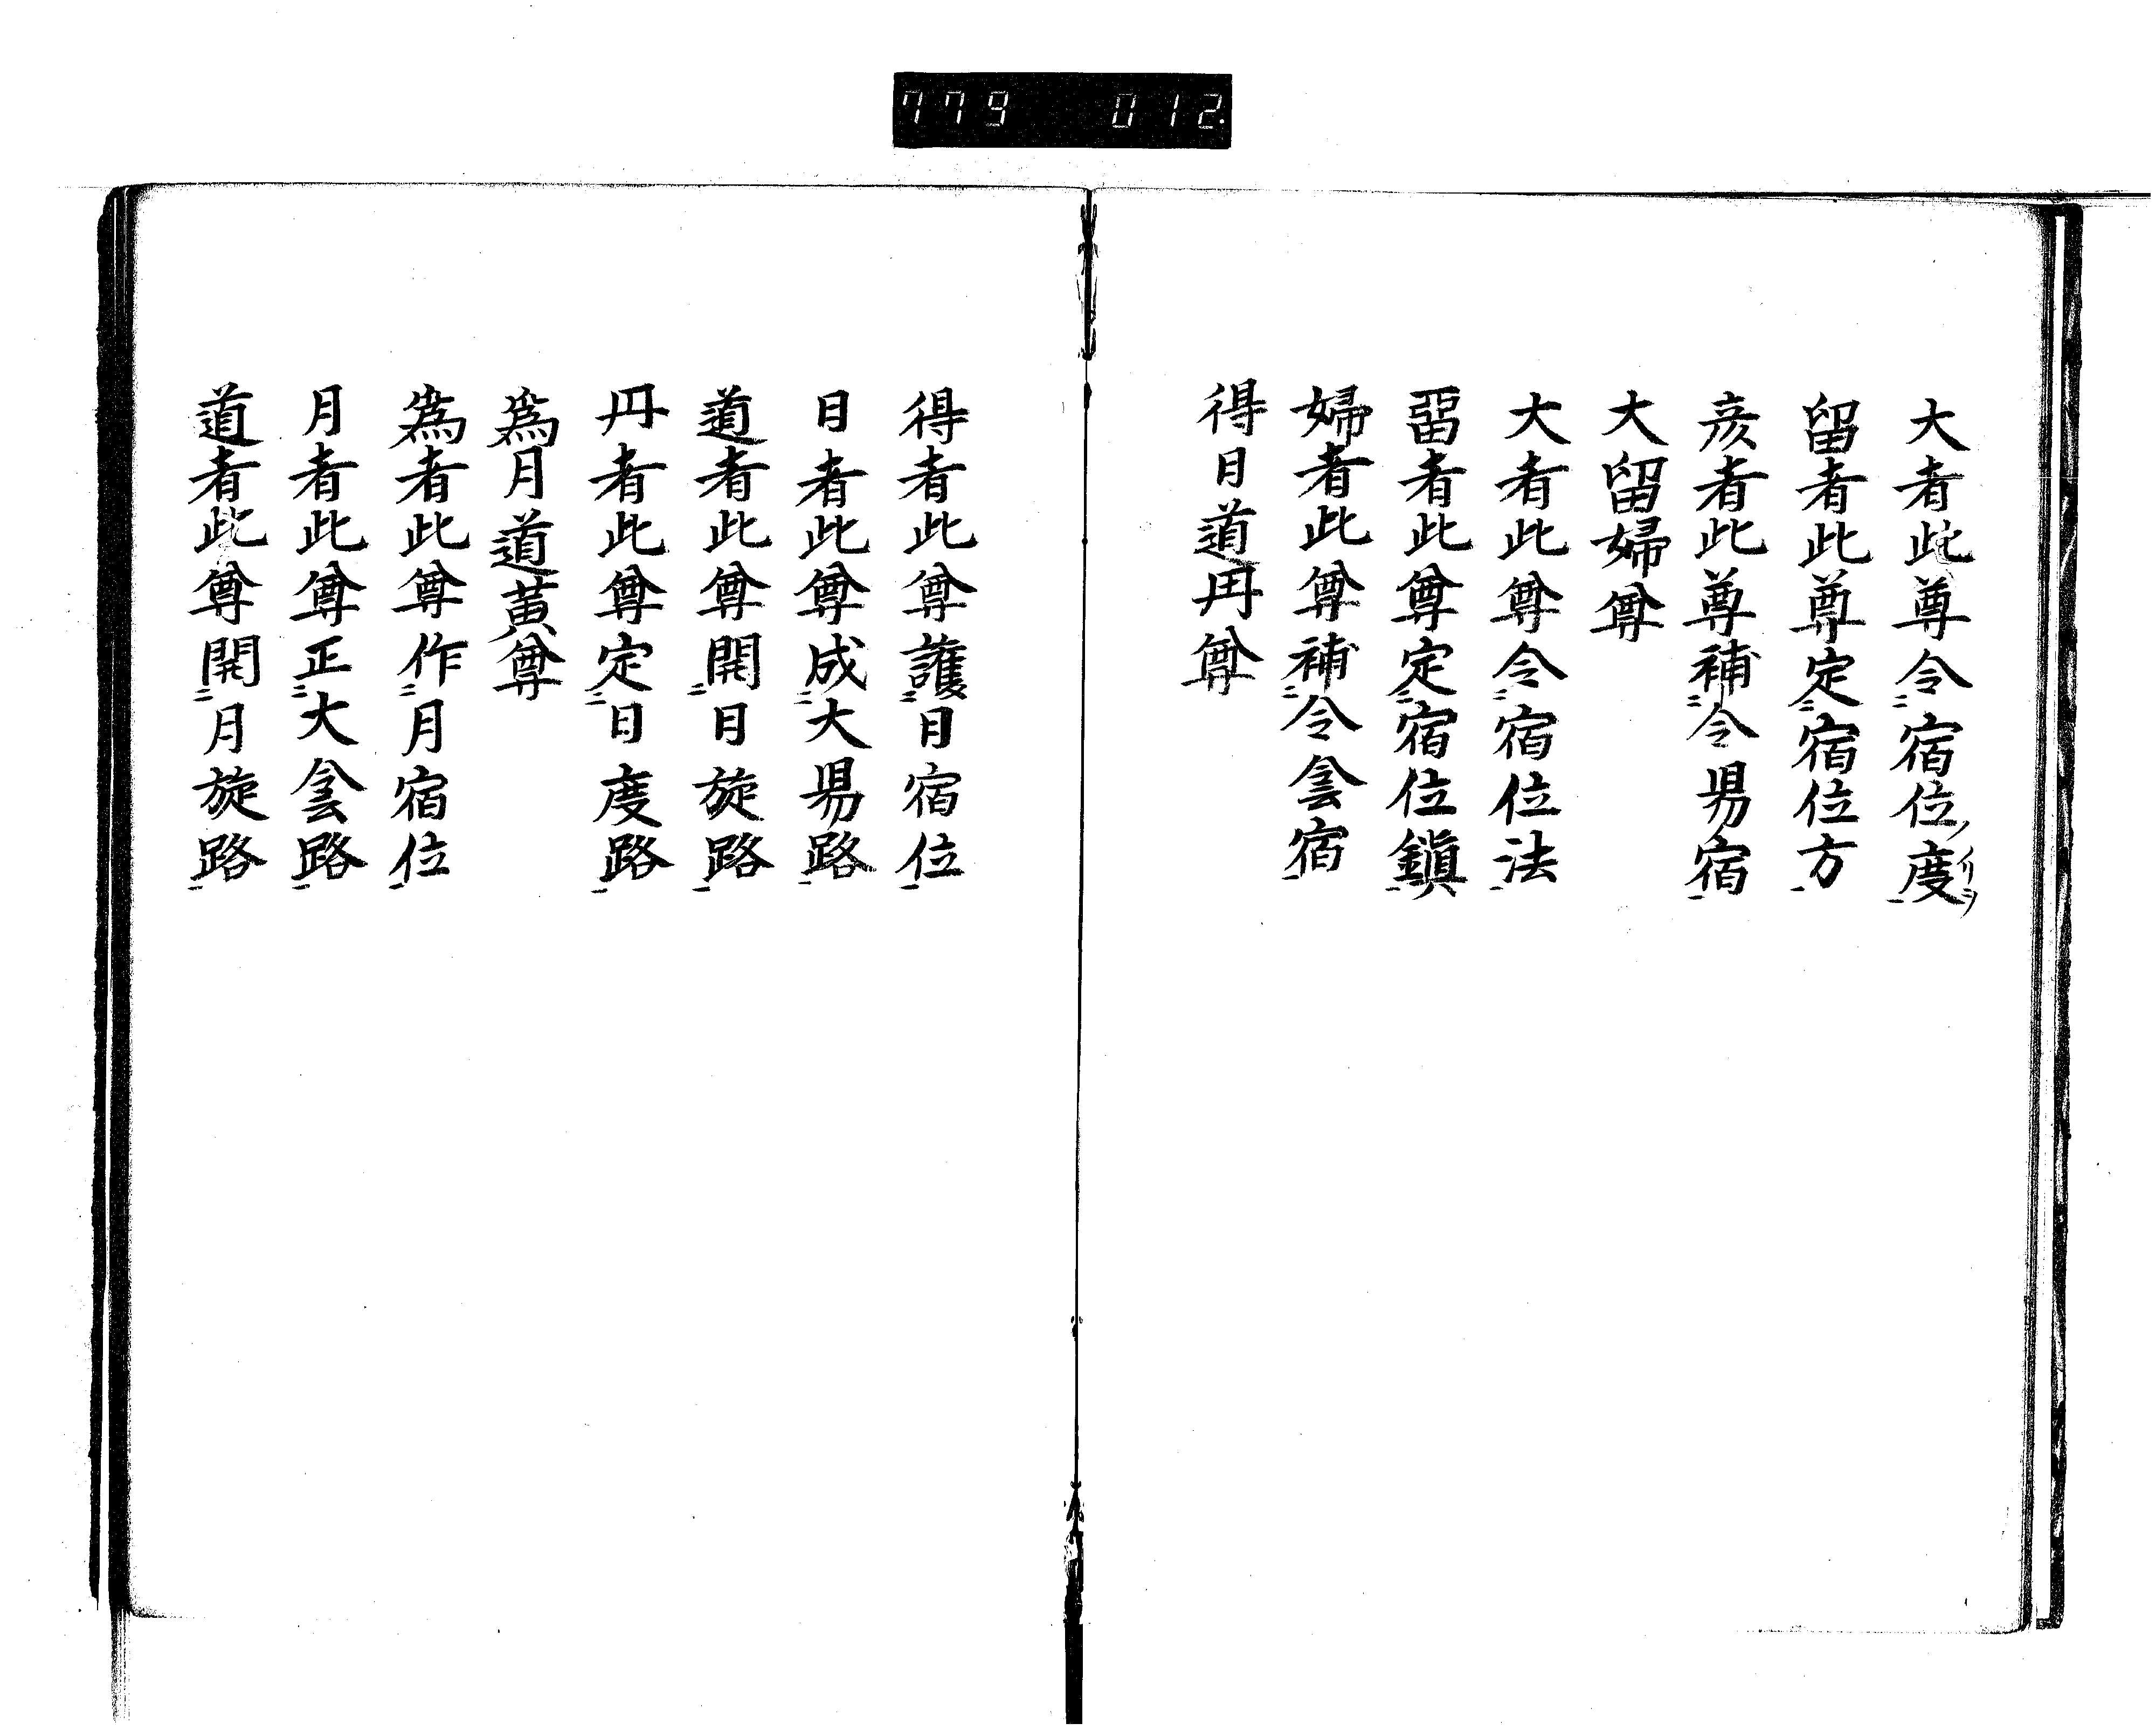 779 012
大者此尊令宿位度
留者此尊定宿位方
彦者此尊補令昜宿
大留婦尊
大者此尊令宿位法
畱者此尊定宿位鎭
婦者此尊補令侌宿
得日道丹尊
得者此尊護日宿位
日者此尊成大昜路
道者此尊開日旋路
丹者此尊定日度路
爲月道黄尊
爲者此尊作月宿位
月者此尊正大侌路
道者此尊開月旋路